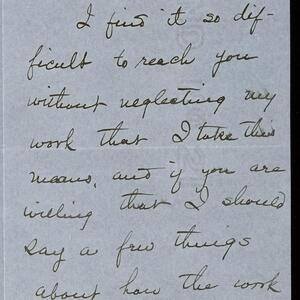 I find it so dif-
ficult to reach you
without neglecting my
work that I take this
means, and if you are
willing that I should
say a few things
about how the work